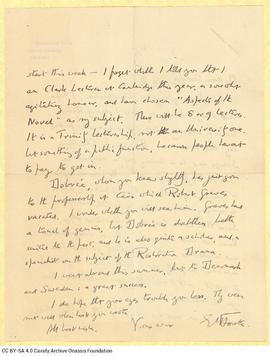 start this week — I forget whether I told you that I
am Clark Lecturer at Cambridge this year, a somewhat
agitating honour, and have chosen "Aspects of the
Novel" as my subject. There will be 8 or 9 lectures.
It is a Trinity Lectureship, not an University one,
but something of a public function, because people have not
to pay to get in.
Dobrée, whom you know slightly, has just gone
to the professorship at Cairo which Robert Graves
vacates. I wonder whether you will see him. Graves has
a touch of genius, but Dobrée is doubtless better
suited to the post, and he is also quite a scholar, and a
specialist on the subject of the Restoration Drama.
I went abroad this summer, but to Denmark
and Sweden is a great success.
I do hope that your eyes trouble you less. They were
not well when last you wrote.
With best wishes
Yours ever
EMForster
CC BY-SA 4.0 Cavafy Archive Onassis Foundation